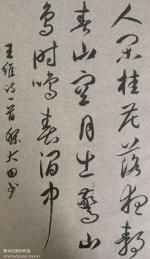 人闲桂花落夜静
春山空月出惊山
鸟时鸣春涧中
王维诗一首 大田书